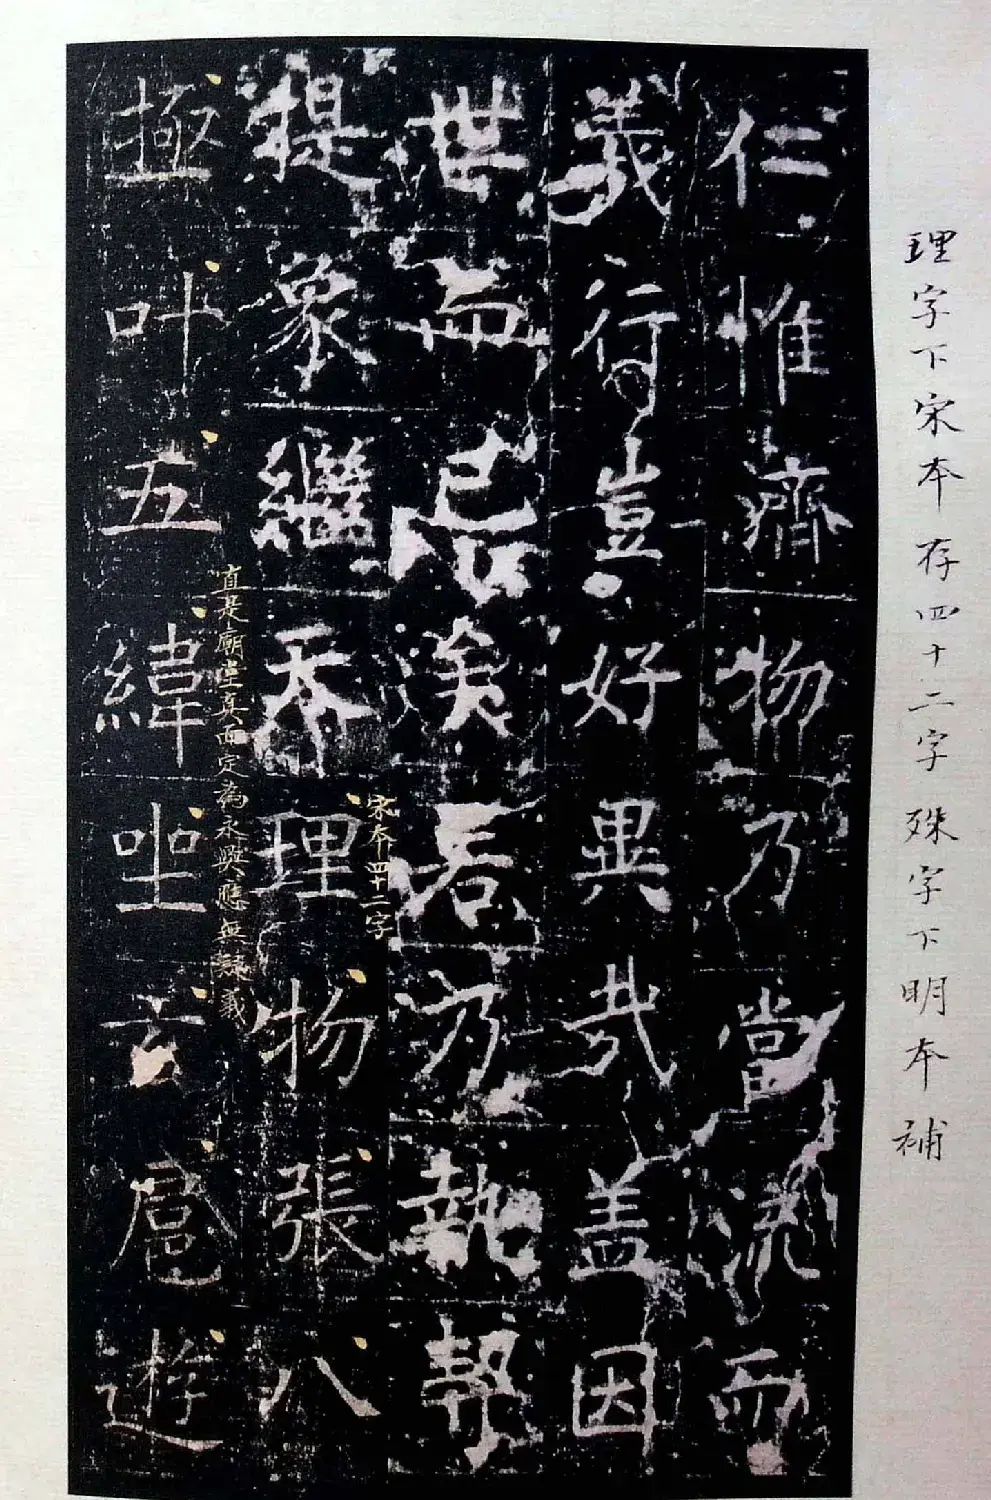 理字下宋本存四十二字殊字下明本補
仁惟濟物乃當流而
義行豈好異哉盖因
世而已矣若乃執契
宋本四十二字
提象繼天理物張八
直是廟堂真面定為永興應無疑義
極叶五緯坐玄扈遊